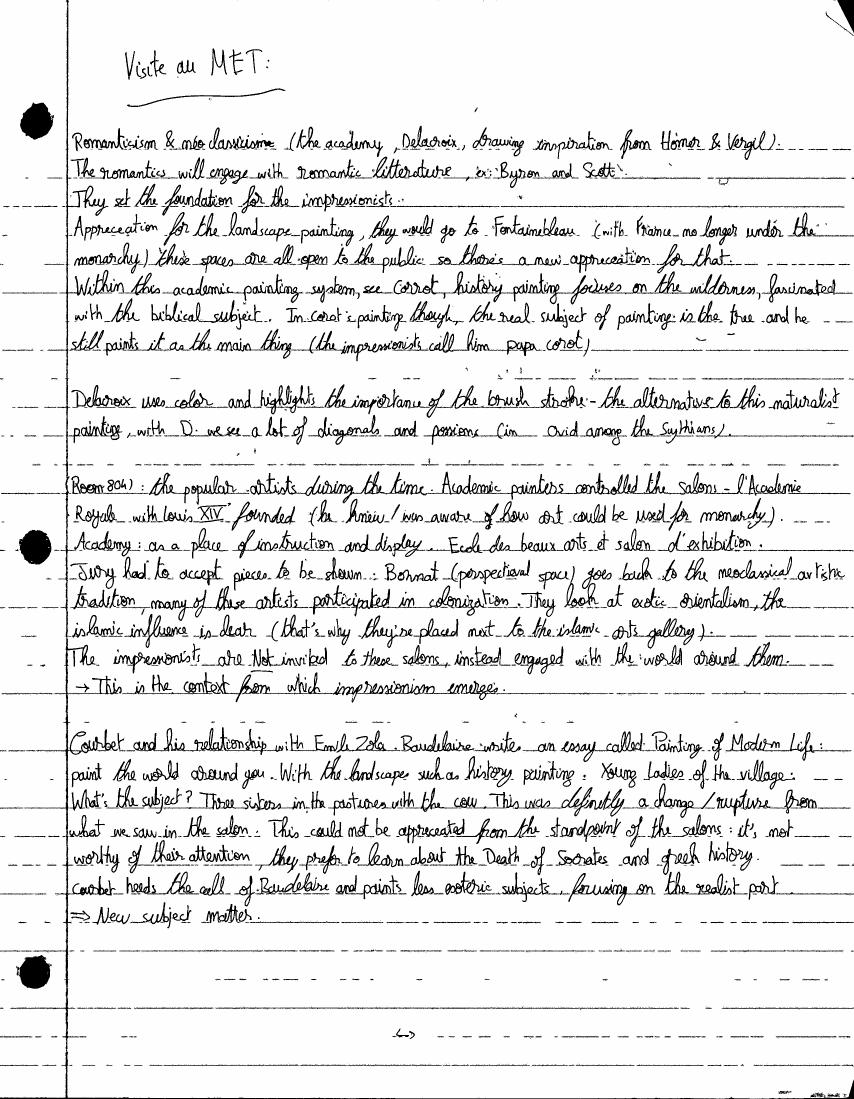 Visite au MET:
Romanticism & néo classicisme (the academy, Delacroix, drawing inspiration from Homer & Vergil).
The romantics will engage with romantic litterature, ex: Byron and Scott.
They set the foundation for the impressionists.
Appreceation for the landscape painting, they would go to Fontainebleau (with France no longer under the
monarchy) these spaces are all open to the public so there's a new appreceation for that.
Within this academic painting system, see Corrot, history painting focuses on the wilderness, fascinated
with the biblical subject. In corot's painting though, the real subject of painting is the tree and he
still paints it as the main thing (the impressionists call him papa corot)
Delacroix uses color and highlights the importance of the brush stroke - the alternative to this naturalist
painting, with D. we see a lot of diagonals and passions (in Ovid among the Sythians).
(Room 804): the popular artists during the time. Academic painters controlled the salons - l'Academie
Royale with Louis XIV founded (he knew / was aware of how art could be used for monarchy).
Academy: as a place of instruction and display. Ecole des beaux arts et salon d'exhibition.
Jury had to accept pieces to be shown: Bonnat (perspectival space) goes back to the neoclassical artistic
tradition, many of these artists participated in colonization. They look at exotic orientalism, the
islamic influence is clear (that's why they're placed next to the islamic arts gallery).
The impressionists are Not invited to these salons, instead engaged with the world around them.
→ This is the context from which impressionism emerges.
Courbet and his relationship with Emile Zola. Baudelaire writes an essay called Painting of Modern Life:
paint the world around you. With the landscapes such as history painting: Young Ladies of the village:
What's the subject? Three sisters in the pastures with the cow. This was definitly a change / rupture from
what we saw in the salon. This could not be appreceated from the standpoint of the salons: it's not
worthy of their attention, they prefer to learn about the Death of Socrates and greek history.
Courbet heeds the call of Baudelaire and paints less esoteric subjects, focusing on the realist part.
⇒ New subject matter.